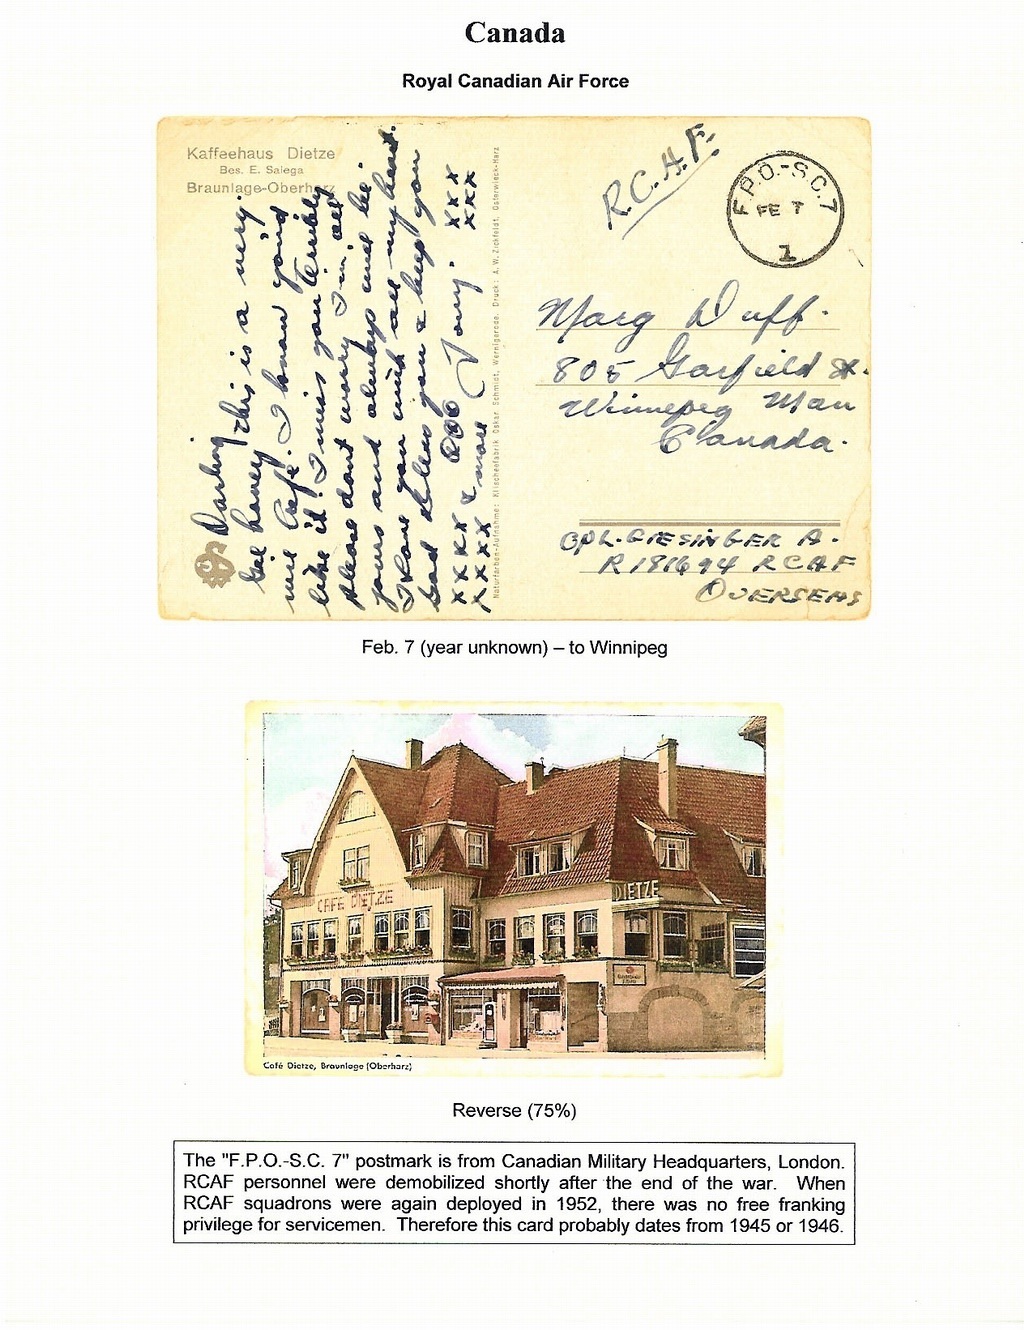 Canada
Royal Canadian Air Force
Kaffeehaus Dietze
Bes. E. Salega
Braunlage-Oberharz
Darling, this is a very
honey
nice Café. I know you'd
like it! I miss you terribly
Please dont worry I'm all
yours and always will be.
I love you with all my heart.
God bless you & keep you
xxxx Tony. xxx
xxxx & more xxx
Naturfarben-Aufnahme: Klischeefabrik Oskar Schmidt, Wernigerode. Druck: A. W. Zickfeldt, Osterwieck-Harz
R.C.A.F.
F.P.O.-S.C.7
FE 7
1
Marg Duff.
805 Garfield St.
Winnepeg Man
Canada.
CPL. GIESINGER A.
R181694 RCAF
OVERSEAS
Feb. 7 (year unknown) – to Winnipeg
CAFE DIETZE
DIETZE
Café Dietze, Braunlage (Oberharz)
Reverse (75%)
The "F.P.O.-S.C. 7" postmark is from Canadian Military Headquarters, London.
RCAF personnel were demobilized shortly after the end of the war. When
RCAF squadrons were again deployed in 1952, there was no free franking
privilege for servicemen. Therefore this card probably dates from 1945 or 1946.